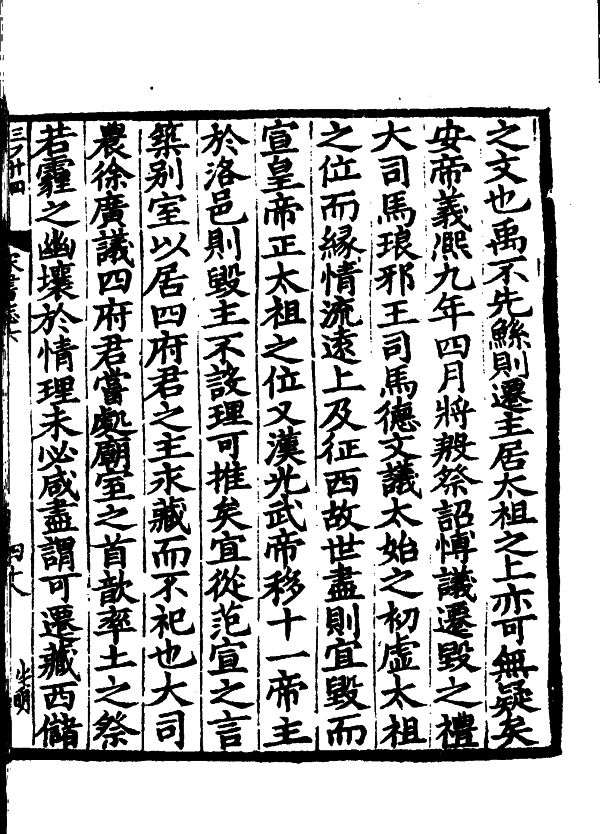 之文也禹不先鯀則遷主居太祖之上亦可無疑矣
安帝義熙九年四月將殷祭詔博議遷毀之禮
大司馬琅邪王司馬德文議太始之初虛太祖
之位而緣情流遠上及征西故世盡則宜毀而
宣皇帝正太祖之位又漢光武帝移十一帝主
於洛邑則毀主不設理可推矣宜從范宣之言
築别室以居四府君之主永藏而不祀也大司
農徐廣議四府君嘗處廟室之首歆率土之祭
若霾之幽壤於情理未必咸盡謂可遷藏西儲